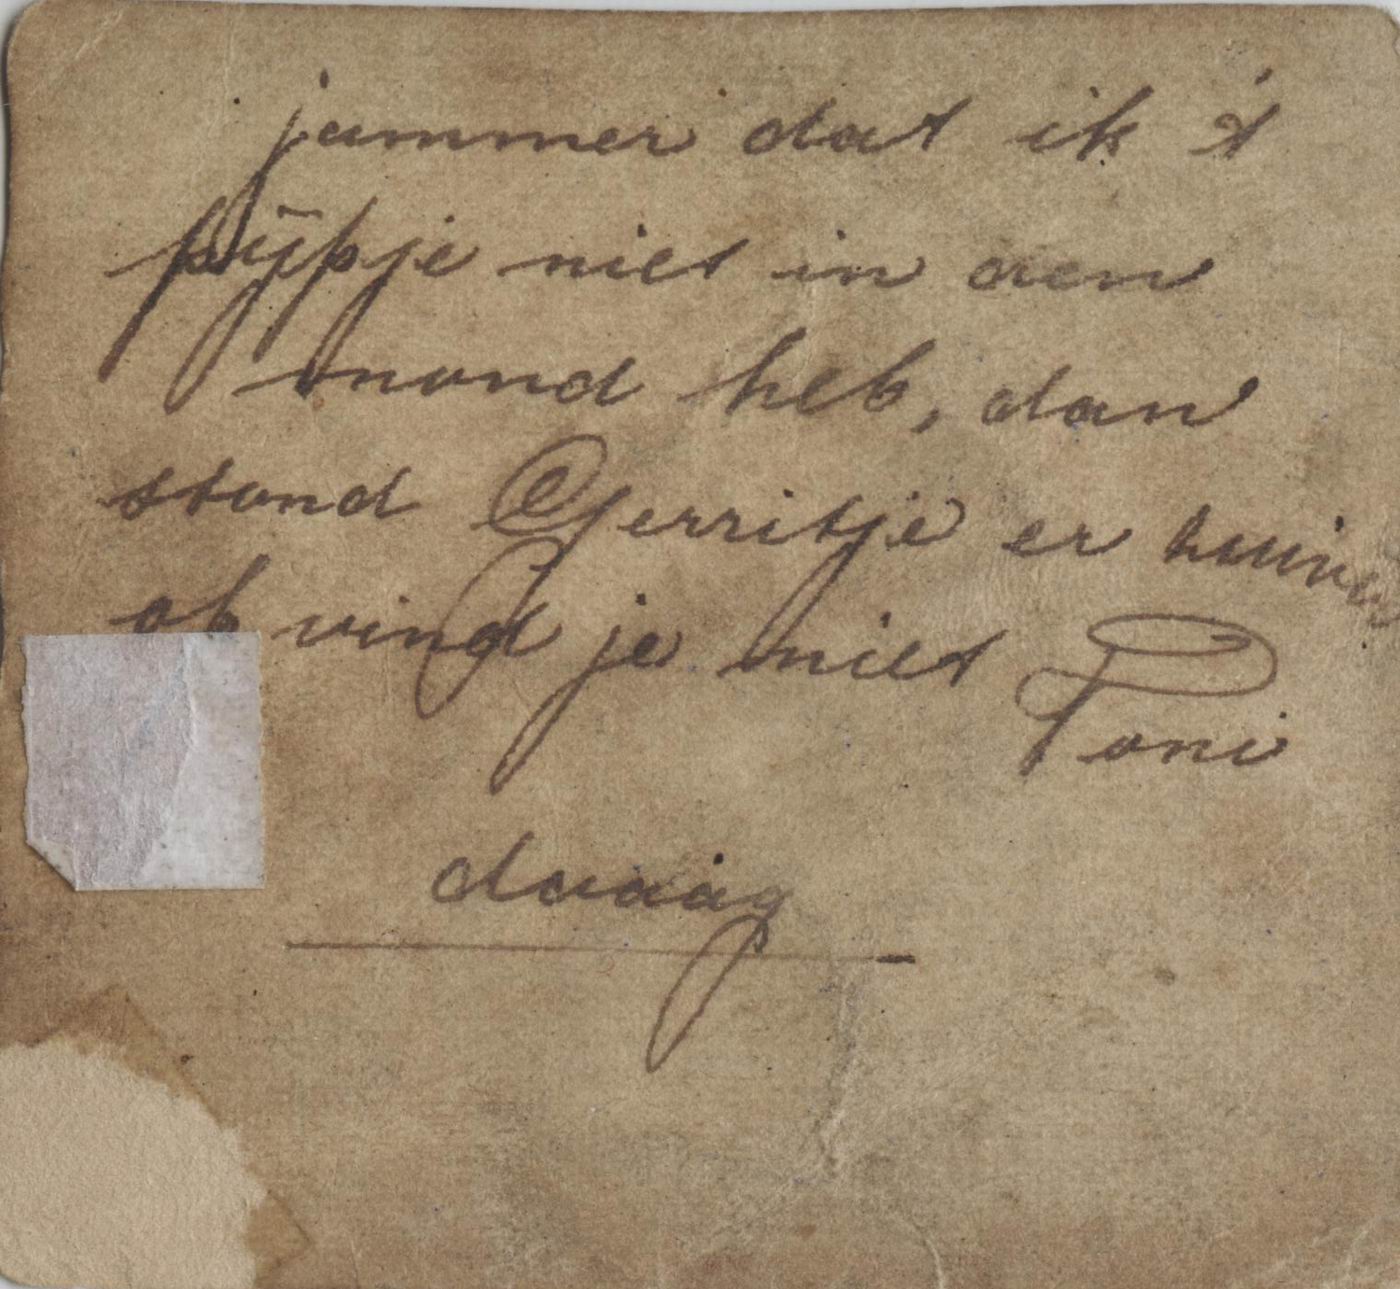 jammer dat ik 't
pijpje niet in den
mond heb, dan
stond Gerritje er
of vind je niet
Toni
daaag